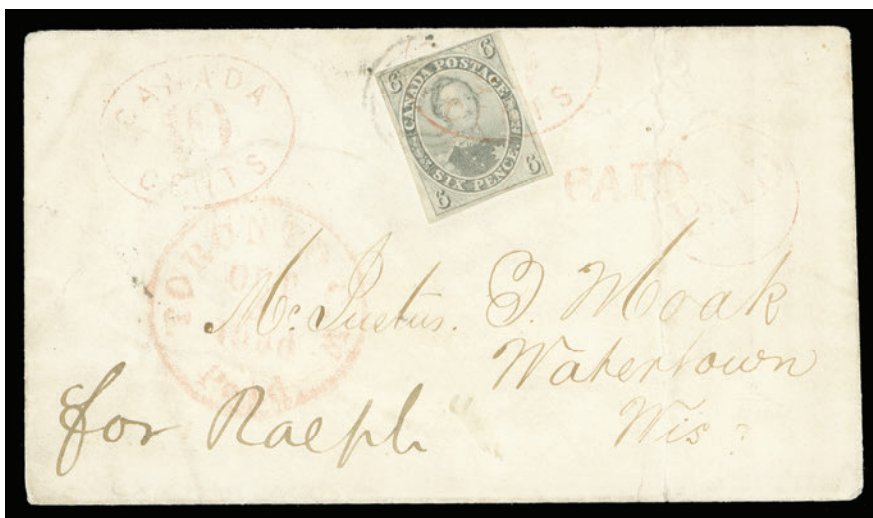 CANADA
10
CENTS
6 6
CANADA POSTAGE
SIX PENCE.
6 6
TS
PAID
TORONTO
Mr. Justus. T. Moak
Watertown
Wis.
for Ralph